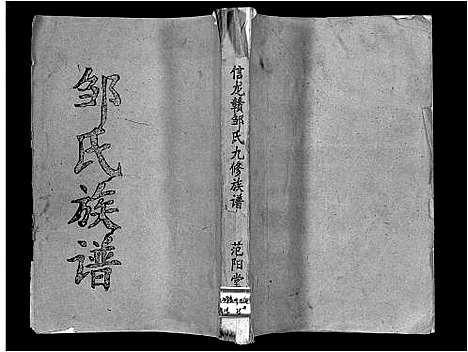 邹氏族谱
信龙赣邹氏九修族谱
范阳堂